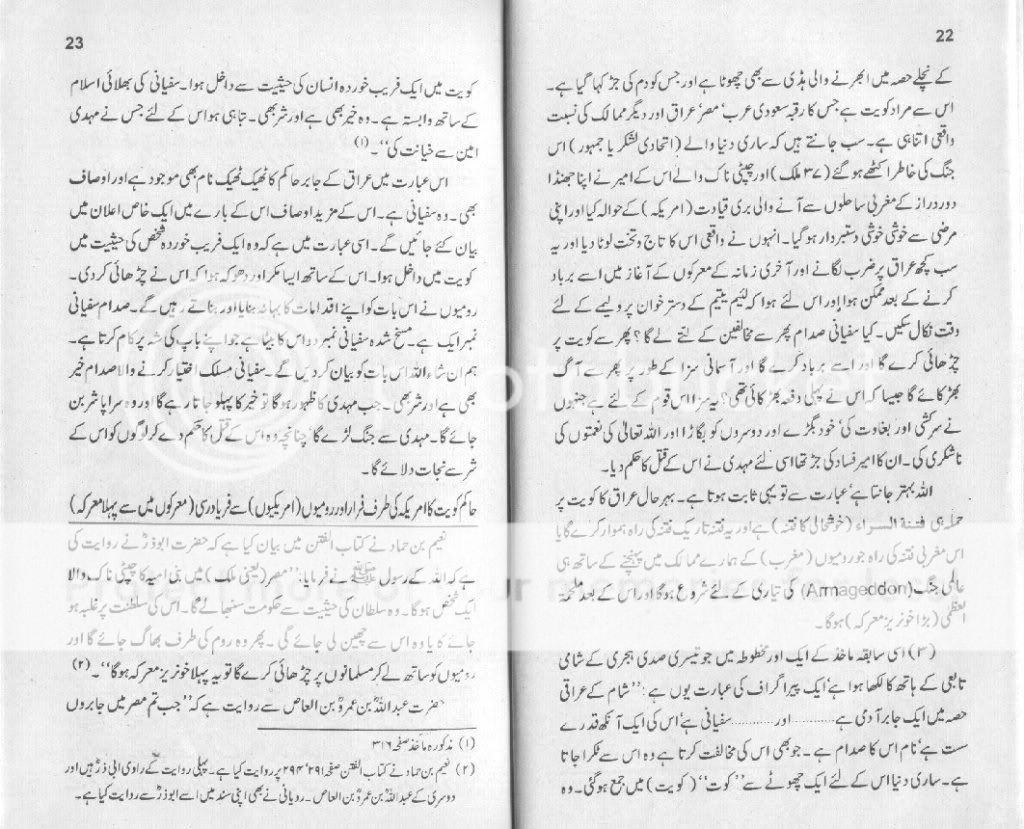 22
کے نچلے حصہ میں ابھرنے والی ہڈی سے بھی چھوٹا ہے اور جس کو دم کی جڑ کہا گیا ہے۔
اس سے مراد کویت ہے جس کا رقبہ سعودی عرب' مصر' عراق اور دیگر ممالک کی نسبت
واقعی اتنا ہی ہے۔ سب جانتے ہیں کہ ساری دنیا والے (اتحادی لشکر یا جمہور) اس
جنگ کی خاطر اکٹھے ہو گئے (۳۷ ملک) اور چپٹی ناک والے اس کے امیر نے اپنا جھنڈا
دور دراز کے مغربی ساحلوں سے آنے والی بری قیادت (امریکہ) کے حوالہ کیا اور اپنی
مرضی سے خوشی خوشی دستبردار ہو گیا۔ انہوں نے واقعی اس کا تاج و تخت لوٹا دیا اور یہ
سب کچھ عراق پر ضرب لگانے اور آخری زمانہ کے معرکوں کے آغاز میں اسے برباد
کرنے کے بعد ممکن ہوا اور اس لئے ہوا کہ لئیم یتیم کے دسترخوان پر ولیمے کے لئے
وقت نکال سکیں۔ کیا سفیانی صدام پھر سے مخالفین کے لتے لے گا؟ پھر سے کویت پر
چڑھائی کرے گا اور اسے برباد کرے گا اور آسمانی سزا کے طور پر پھر سے آگ
بھڑکائے گا جیسا کہ اس نے پہلی دفعہ بھڑکائی تھی؟ یہ سزا اس قوم کے لئے ہے جنہوں
نے سرکشی اور بغاوت کی' خود بگڑے اور دوسروں کو بگاڑا اور اللہ تعالیٰ کی نعمتوں کی
ناشکری کی۔ ان کا امیر فساد کی جڑ تھا اسی لئے مہدی نے اس کے قتل کا حکم دیا۔
اللہ بہتر جانتا ہے' عبارت سے تو یہی ثابت ہوتا ہے۔ بہرحال عراق کا کویت پر
حملہ ہی فتنة السراء (خوشحالی کا فتنہ) ہے اور یہ فتنہ تاریک فتنہ کی راہ ہموار کرے گا یا
اس مغربی فتنہ کی راہ جو رومیوں (مغرب) کے ہمارے ممالک میں پہنچنے کے ساتھ ہی
عالمی جنگ (Armageddon) کی تیاری کے لئے شروع ہوگا اور اس کے بعد ملحمة
العظمیٰ (بڑا خونریز معرکہ) ہوگا۔
(۳) اسی سابقہ ماخذ کے ایک اور مخطوطہ میں جو تیسری صدی ہجری کے شامی
تابعی کے ہاتھ کا لکھا ہوا ہے' ایک پیراگراف کی عبارت یوں ہے: ''شام کے عراقی
حصہ میں ایک جابر آدمی ہے............ اور ............ سفیانی ہے' اس کی ایک آنکھ قدرے
ست ہے' نام اس کا صدام ہے۔ جو بھی اس کی مخالفت کرتا ہے وہ اس سے ٹکرا جاتا
ہے۔ ساری دنیا اس کے لئے ایک چھوٹے سے ''کوت'' (کویت) میں جمع ہو گئی۔ وہ
23
کویت میں ایک فریب خوردہ انسان کی حیثیت سے داخل ہوا۔ سفیانی کی بھلائی اسلام
کے ساتھ وابستہ ہے۔ وہ خیر بھی ہے اور شر بھی۔ تباہی ہو اس کے لئے جس نے مہدی
امین سے خیانت کی''۔(۱)
اس عبارت میں عراق کے جابر حاکم کا ٹھیک ٹھیک نام بھی موجود ہے اور اوصاف
بھی۔ وہ سفیانی ہے۔ اس کے مزید اوصاف اس کے بارے میں ایک خاص اعلان میں
بیان کئے جائیں گے۔ اسی عبارت میں ہے کہ وہ ایک فریب خوردہ شخص کی حیثیت میں
کویت میں داخل ہوا۔ اس کے ساتھ ایسا مکر اور دھوکہ ہوا کہ اس نے چڑھائی کر دی۔
رومیوں نے اس بات کو اپنے اقدامات کا بہانہ بنایا اور بناتے رہیں گے۔ صدام سفیانی
نمبر ایک ہے۔ مسخ شدہ سفیانی نمبر دو اس کا بیٹا ہے جو اپنے باپ کی شہ پر کام کرتا ہے۔
ہم ان شاء اللہ اس بات کو بیان کر دیں گے۔ سفیانی مسلک اختیار کرنے والا صدام خیر
بھی ہے اور شر بھی۔ جب مہدی کا ظہور ہوگا تو خیر کا پہلو جاتا رہے گا اور وہ سراپا شر بن
جائے گا۔ مہدی سے جنگ لڑے گا' چنانچہ وہ اس کے قتل کا حکم دے کر لوگوں کو اس کے
شر سے نجات دلائے گا۔
حاکم کویت کا امریکہ کی طرف فرار اور رومیوں (امریکیوں) سے فریاد رسی (معرکوں میں سے پہلا معرکہ)
نعیم بن حماد نے کتاب الفتن میں بیان کیا ہے کہ حضرت ابوذرؓ نے روایت کی
ہے کہ اللہ کے رسول ﷺ نے فرمایا: ''مصر (یعنی ملک) میں بنی امیہ کا چپٹی ناک والا
ایک شخص ہوگا۔ وہ سلطان کی حیثیت سے حکومت سنبھالے گا۔ اس کی سلطنت پر غلبہ ہو
جائے گا یا وہ اس سے چھین لی جائے گی۔ پھر وہ روم کی طرف بھاگ جائے گا اور
رومیوں کو ساتھ لے کر مسلمانوں پر چڑھائی کرے گا تو یہ پہلا خونریز معرکہ ہوگا''۔(۲)
حضرت عبداللہؓ بن عمروؓ بن العاص سے روایت ہے کہ ''جب تم مصر میں جابروں
(۱) مذکورہ ماخذ صفحہ ۳۱۶
(۲) نعیم بن حماد نے کتاب الفتن صفحہ ۲۹۱' ۲۹۴ پر روایت کیا ہے۔ پہلی روایت کے راوی ابی ذرؓ ہیں اور
دوسری کے عبداللہؓ بن عمروؓ بن العاص۔ رویانی نے بھی اپنی سند میں اسے ابوذرؓ سے روایت کیا ہے۔